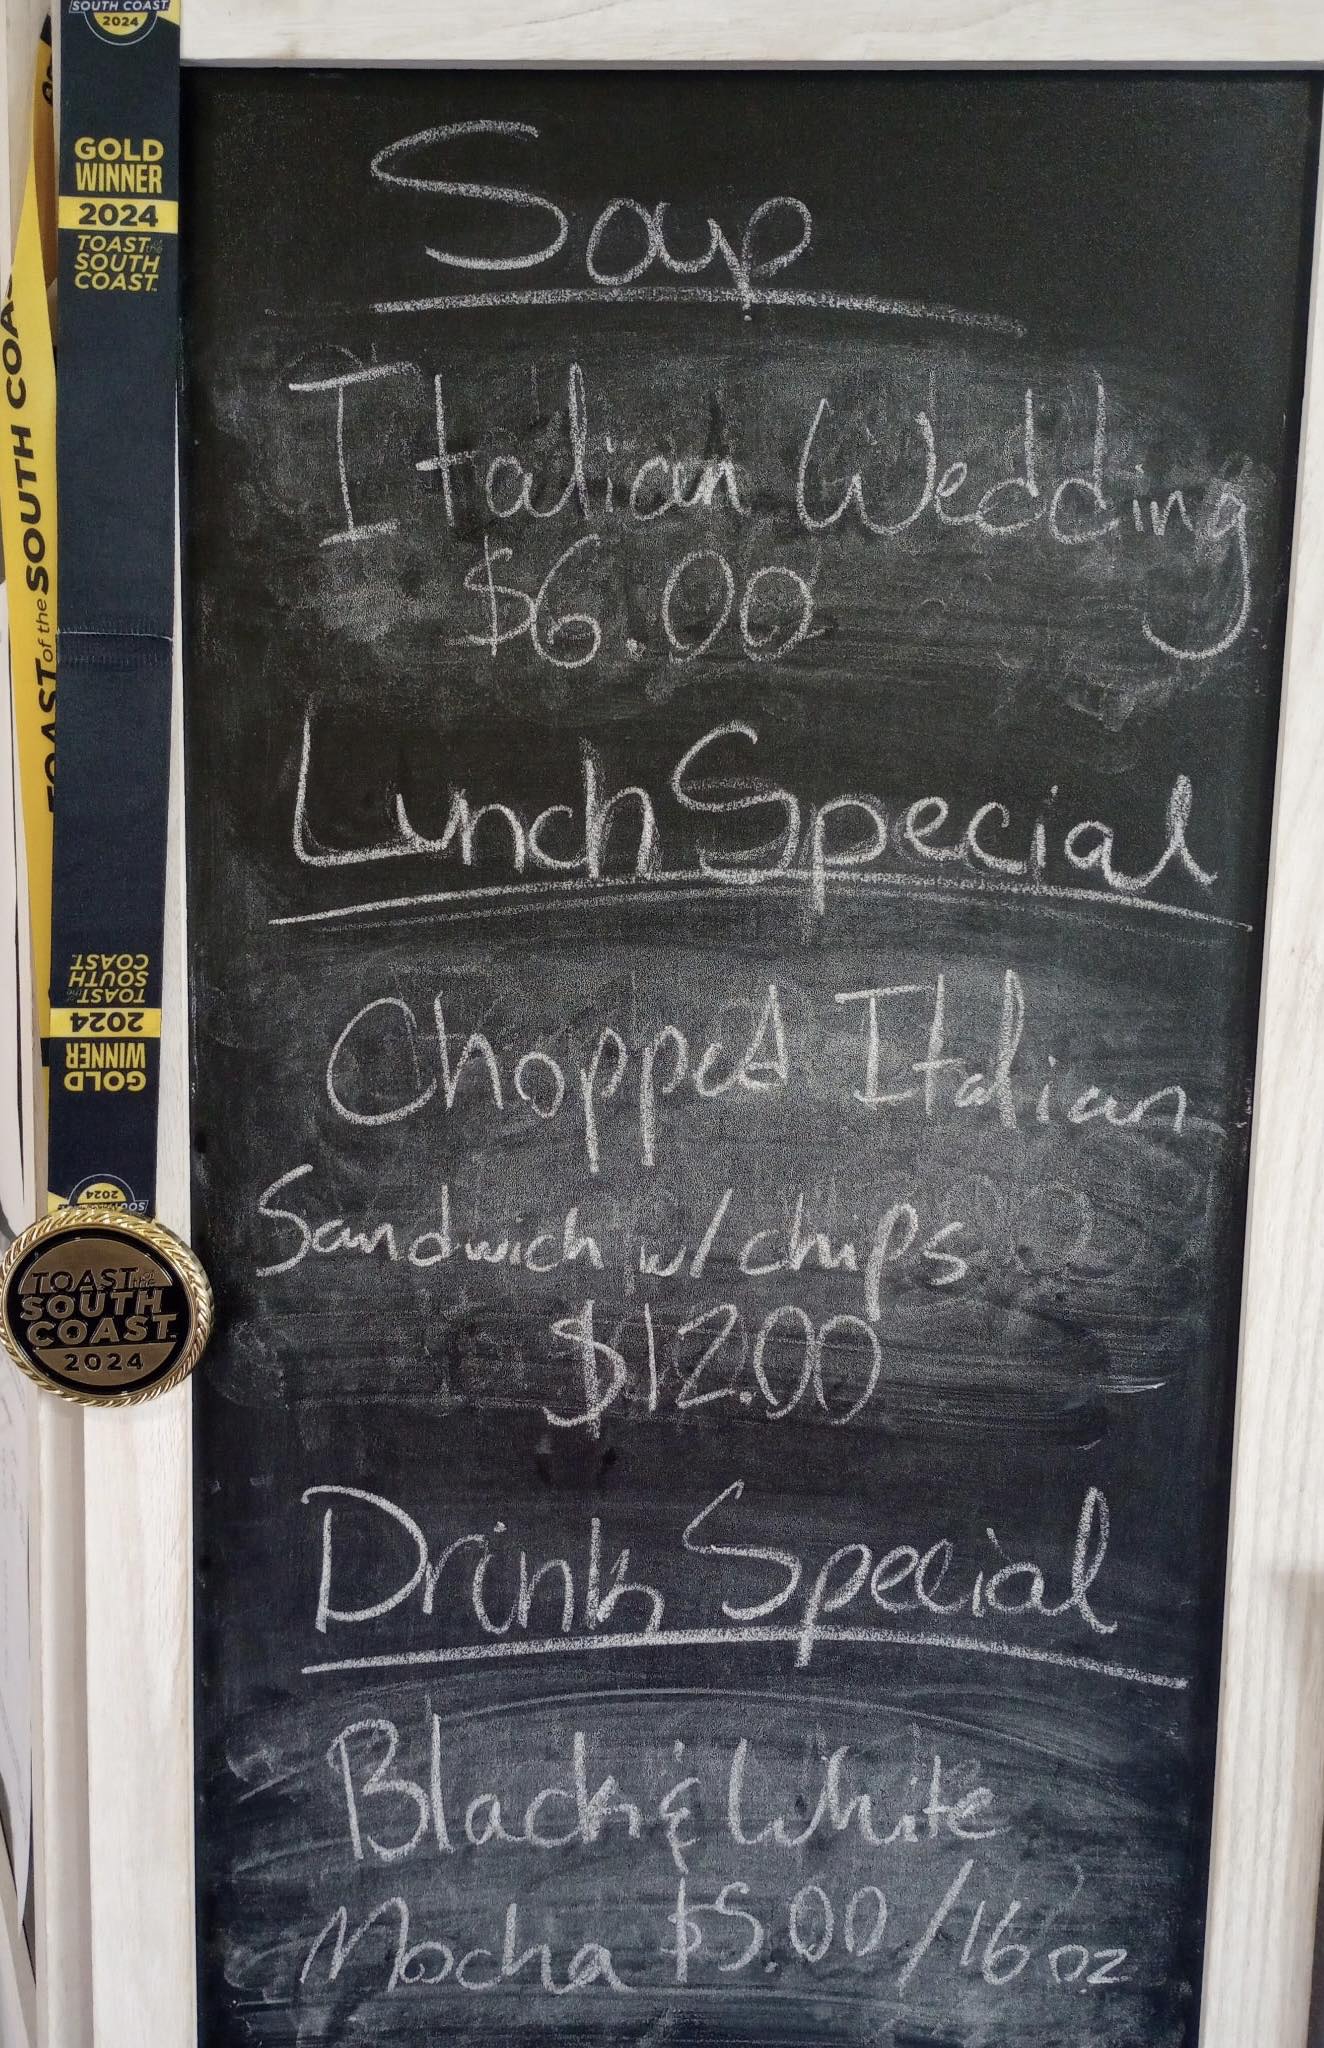 SOUTH COAST
2024
GOLD
WINNER
2024
TOAST of the
SOUTH
COAST
TOAST of the SOUTH COA
TOAST of the
SOUTH
COAST
2024
GOLD
WINNER
2024
TOAST of the
SOUTH
COAST
2024
Soup
Italian Wedding
$6.00
Lunch Special
Chopped Italian
Sandwich w/ chips
$12.00
Drink Special
Black & White
Mocha $5.00/16 oz